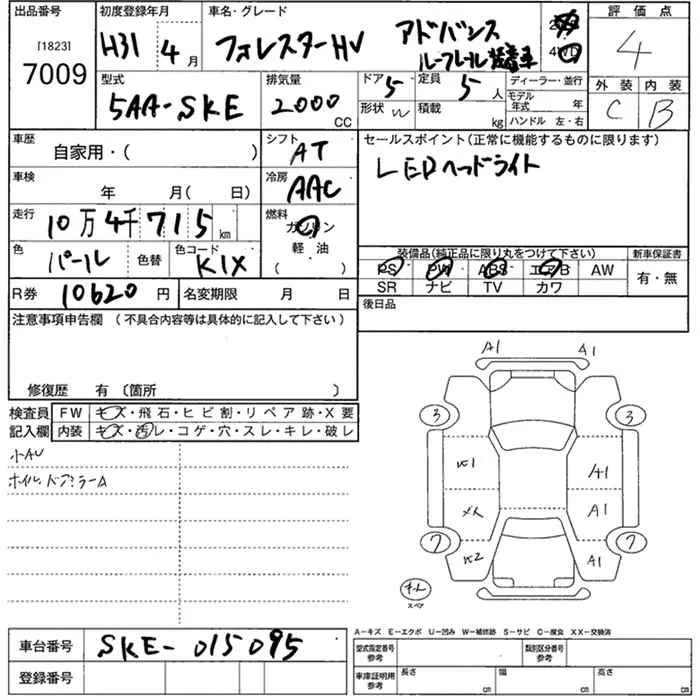 出品番号 初度登録年月 車名・グレード 評価点
[1823] 7009 H31年4月 フォレスターHV アドバンス 4
ルーフレール装着車 4WD
型式 排気量 ドア 5 定員 5人 ディーラー・並行 外装 内装
5AA-SKE 2000CC 形状 W 積載 kg モデル年式 年 C B
ハンドル 左・右
車歴 シフト セールスポイント(正常に機能するものに限ります)
自家用・( ) AT LEDヘッドライト
車検 年 月( 日) 冷房 AAC
走行 10万4千715km 燃料 ガソリン
軽油
( )
色 パール 色替 色コード K1X
装備品(純正品に限り丸をつけて下さい) 新車保証書
PS PW ABS エアB AW 有・無
SR ナビ TV カワ
R券 10620円 名変期限 月 日 後日品
注意事項申告欄 (不具合内容等は具体的に記入して下さい)
修復歴 有 〔箇所 〕
検査員 FW キズ・飛石・ヒビ割・リペア跡・X要
記入欄 内装 キズ・汚レ・コゲ・穴・スレ・キレ・破レ
小AU
ホイル、ドアミラーA
A1 A1
3 3
A1
A1
7 7
A1
スペア
A-キズ E-エクボ U-凹み W-補修跡 S-サビ C-腐食 XX-交換済
車台番号 SKE-015095
型式指定番号 参考 類別区分番号 参考
登録番号
車庫証明用 参考 長さ cm 幅 cm 高さ cm